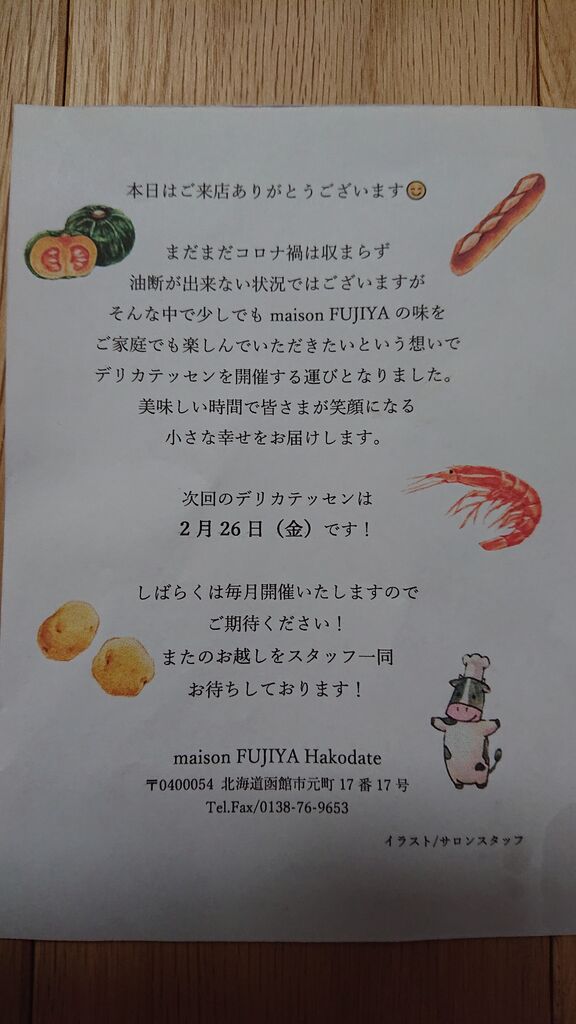 本日はご来店ありがとうございます😊
まだまだコロナ禍は収まらず
油断が出来ない状況ではございますが
そんな中で少しでも maison FUJIYA の味を
ご家庭でも楽しんでいただきたいという想いで
デリカテッセンを開催する運びとなりました。
美味しい時間で皆さまが笑顔になる
小さな幸せをお届けします。
次回のデリカテッセンは
2 月 26 日（金）です！
しばらくは毎月開催いたしますので
ご期待ください！
またのお越しをスタッフ一同
お待ちしております！
maison FUJIYA Hakodate
〒0400054 北海道函館市元町 17 番 17 号
Tel.Fax/0138-76-9653
イラスト/サロンスタッフ